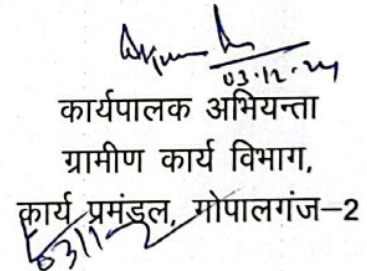 03.12.24
कार्यपालक अभियन्ता
ग्रामीण कार्य विभाग,
कार्य प्रमंडल, गोपालगंज-2